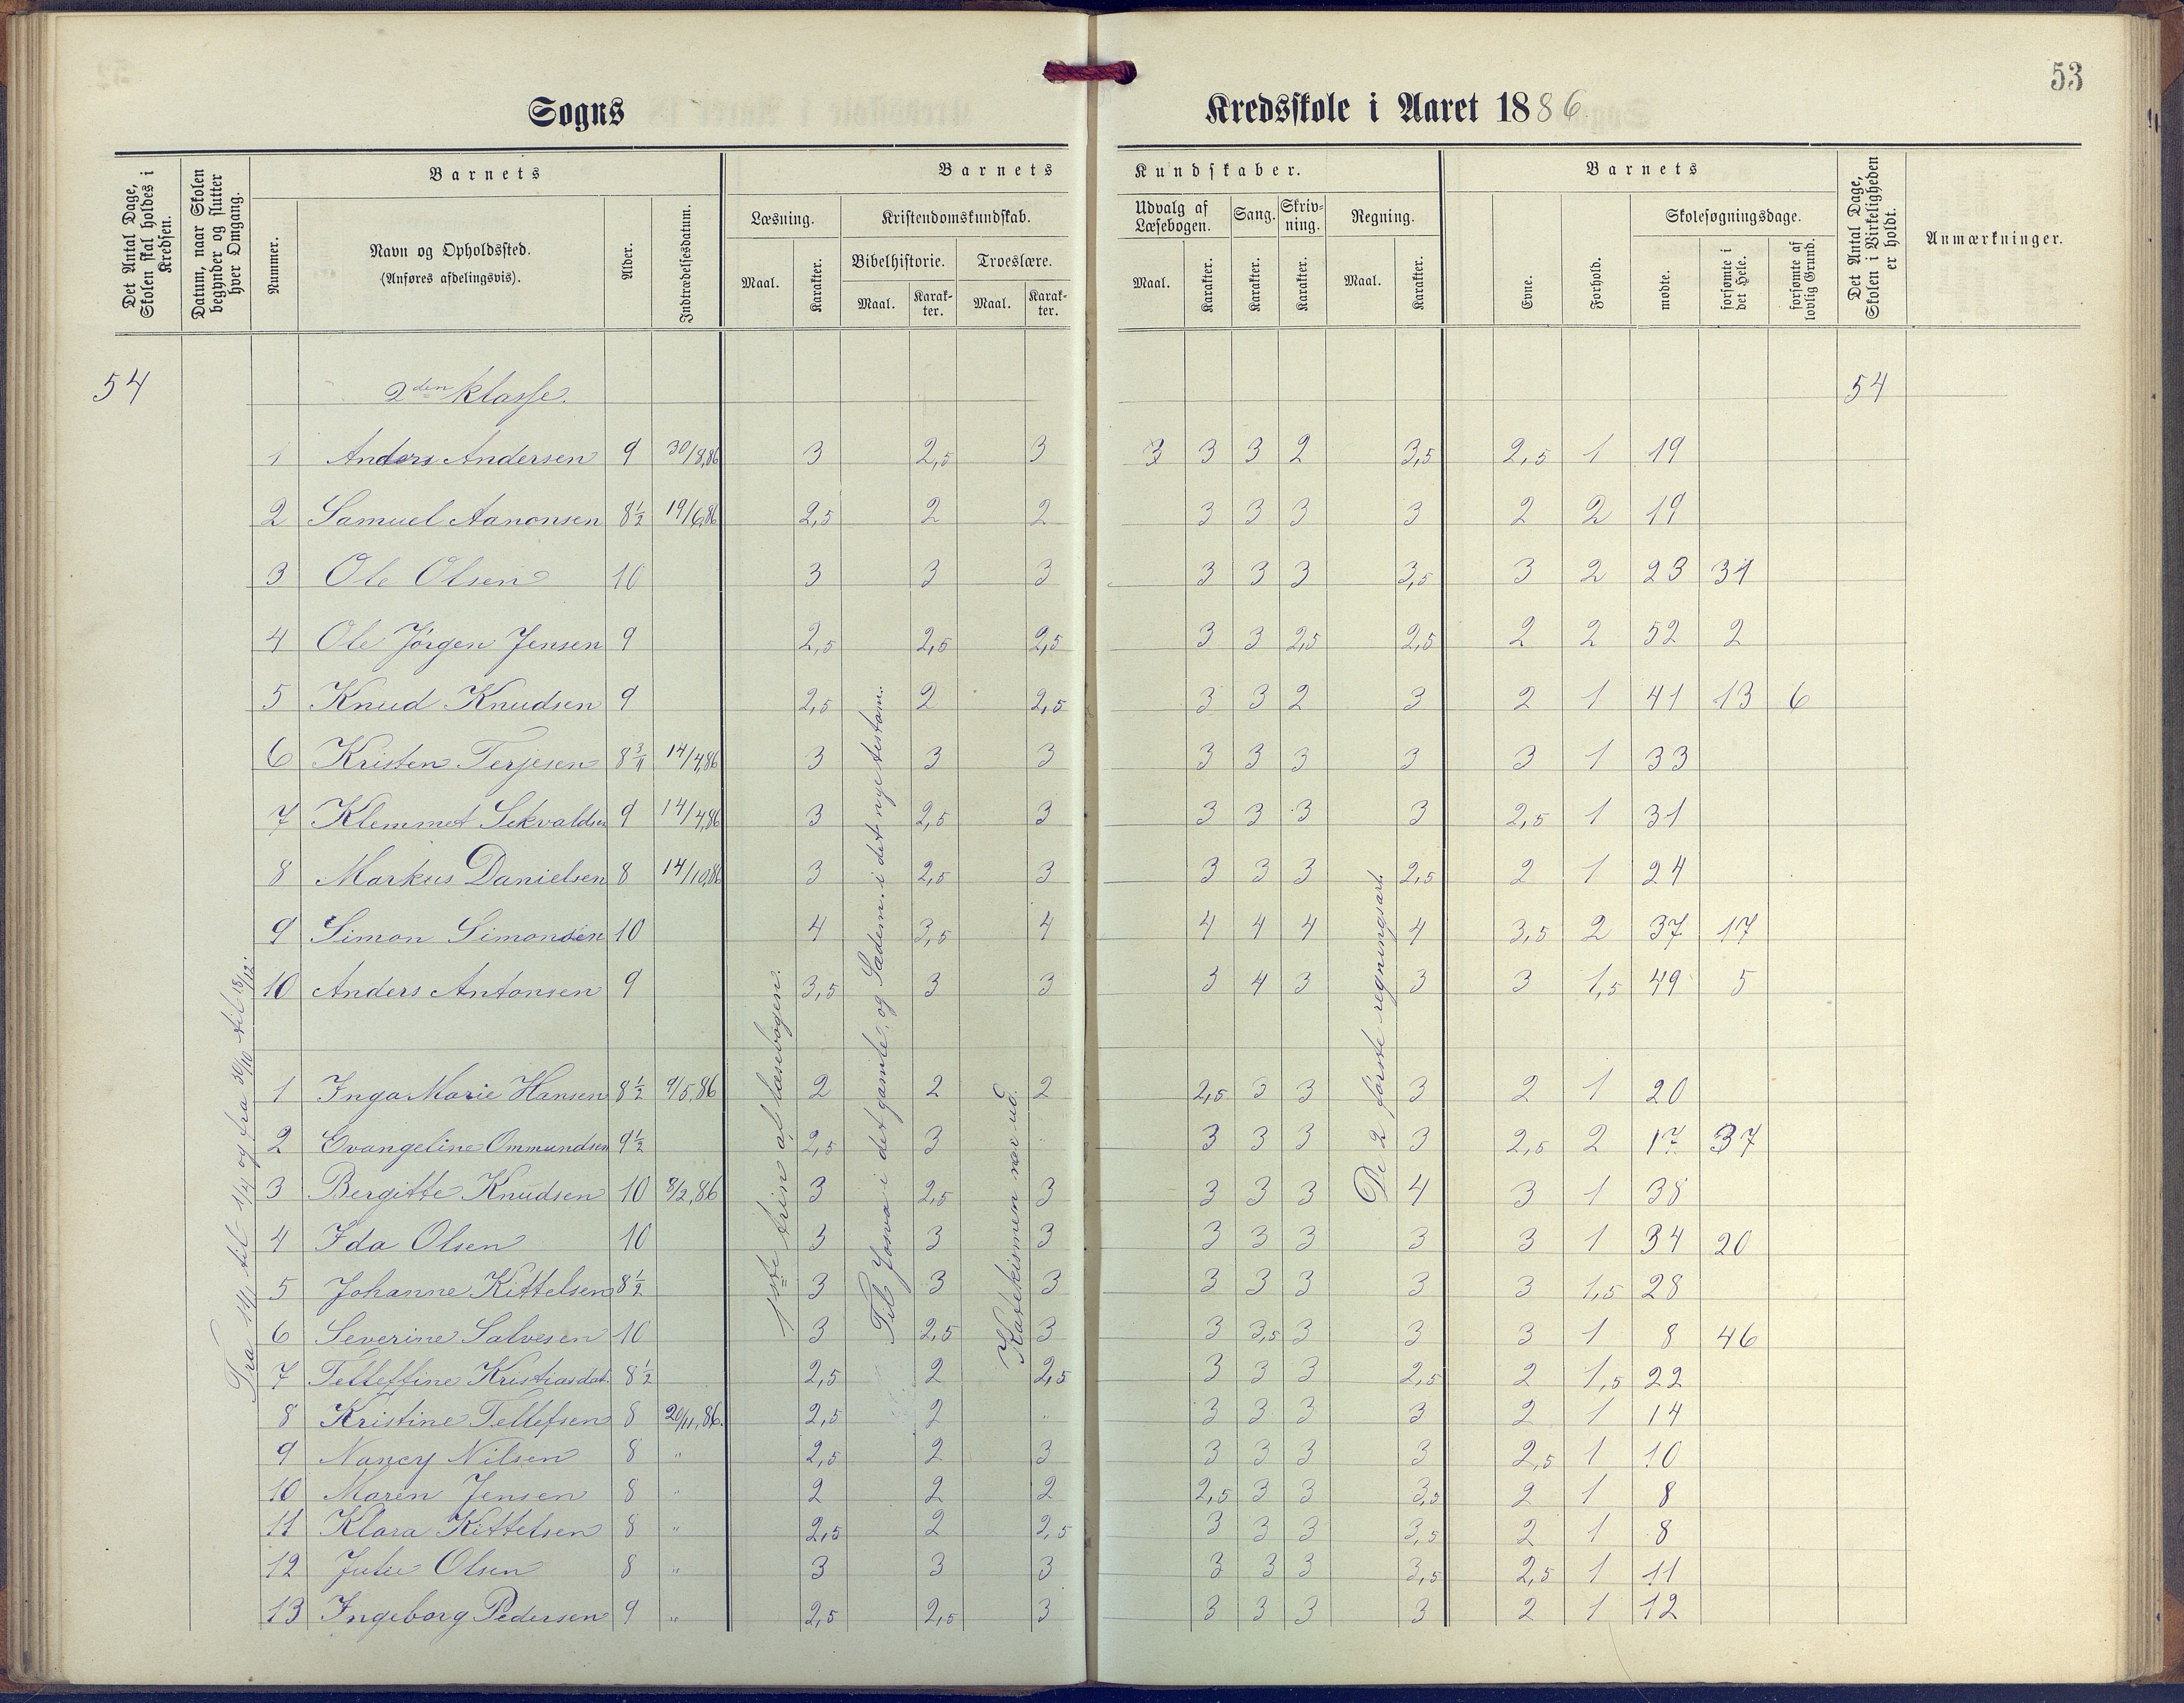 53
Sogns Kredsskole i Aaret 1886.
Det Antal Dage, Skolen skal holdes i Kredsen.
Datum, naar Skolen begynder og slutter hver Omgang.
Barnets
Nummer.
Navn og Opholdssted.
(Anføres afdelingsvis).
Alder.
Indtrædelsesdatum.
Barnets Kundskaber.
Læsning.
Maal. Karakter.
Kristendomskundskab.
Bibelhistorie. Troeslære.
Maal. Karakter. Maal. Karakter.
Udvalg af Læsebogen.
Maal. Karakter.
Sang.
Karakter.
Skrivning.
Karakter.
Regning.
Maal. Karakter.
Barnets
Evne.
Forhold.
Skolesøgningsdage.
mødte.
forsømte i det Hele.
forsømte af lovlig Grund.
Det Antal Dage, Skolen i Virkeligheden er holdt.
Anmærkninger.
54 2den klasse. 54
1 Anders Andersen 9 30/8,86 3 2,5 3 3 3 3 2 3,5 2,5 1 19
2 Samuel Aanonsen 8½ 19/6,86 2,5 2 2 3 3 3 3 2 2 19
3 Ole Olsen 10 3 3 3 3 3 3 3,5 3 2 23 31
4 Ole Jörgen Jensen 9 2,5 2,5 2,5 3 3 2,5 2,5 2 2 52 2
5 Knud Knudsen 9 2,5 2 2,5 3 3 2 3 2 1 41 13 6
6 Kristen Terjesen 8 14/4,86 3 3 3 3 3 3 3 3 1 33
7 Klemmet Sekvaldsen 9 14/4,86 3 2,5 3 3 3 3 3 2,5 1 31
8 Markus Danielsen 8 14/10,86 3 2,5 3 3 3 3 2,5 2 1 24
9 Simon Simonsen 10 4 3,5 4 4 4 4 4 3,5 2 37 17
10 Anders Antonsen 9 3,5 3 3 3 4 3 3 3 1,5 49 5
1 Inga Marie Hansen 8½ 9/5,86 2 2 2 2,5 3 3 3 2 1 20
2 Evangeline Ommundsen 9½ 2,5 3 " 3 3 3 3 2,5 2 17 37
3 Bergitte Knudsen 10 8/2,86 3 2,5 3 3 3 3 4 3 1 38
4 Ida Olsen 10 3 3 3 3 3 3 3 3 1 34 20
5 Johanne Kittelsen 8½ 3 3 3 3 3 3 3 3 1,5 28
6 Severine Salvesen 10 3 2,5 3 3 3,5 3 3 3 1 8 46
7 Telleffine Kristiasdat. 8½ 2,5 2 2,5 3 3 3 2,5 2 1,5 22
8 Kristine Tellefsen 8 20/11,86. 2,5 2 " 3 3 3 3 2 1 14
9 Nancy Nilsen 8 " 2,5 2 3 3 3 3 3 2,5 1 10
10 Maren Jensen 8 " 2 2 2 2,5 3 3 3,5 2 1 8
11 Klara Kittelsen 8 " 2,5 2 2,5 3 3 3 3,5 2 1 8
12 Julie Olsen 8 " 3 3 3 3 3 3 3,5 2,5 1 11
13 Ingeborg Pedersen 9 " 2,5 2,5 3 3 3 3 3 2 1 12
Fra 14/1 til 1/4 og fra 30/10 til 18/12.
1ste trin af læsebogen.
Til Josva i det gamle, og Sædem. i det nye testam.
Katekismen nær ud.
De 2 første regningsart.